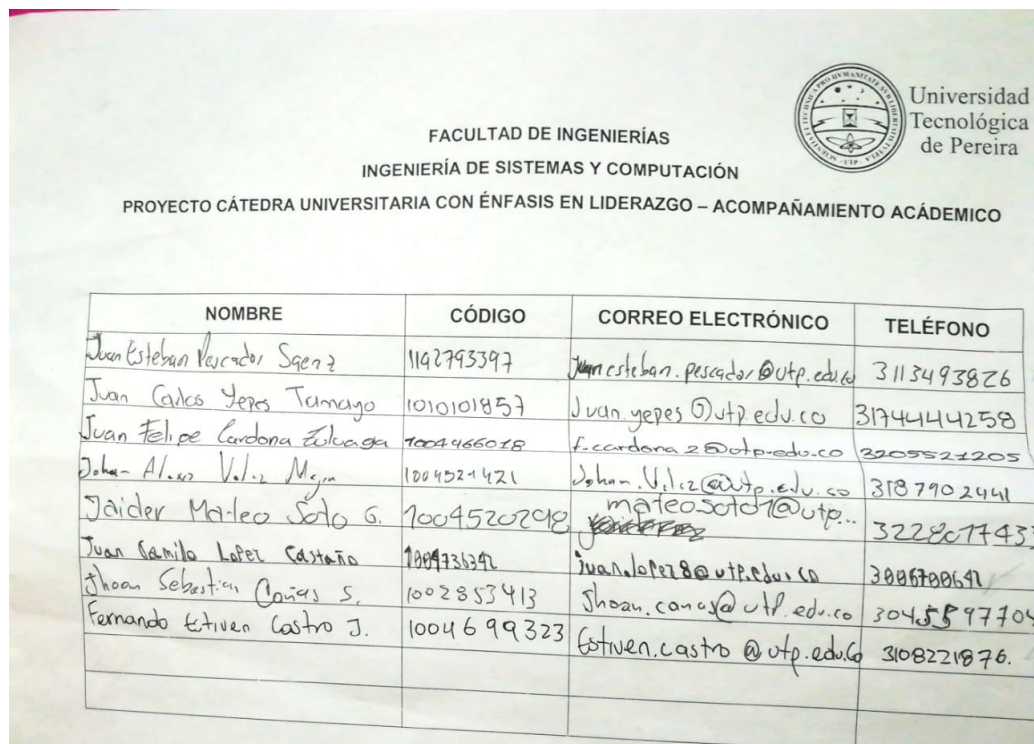 Universidad
Tecnológica
de Pereira
FACULTAD DE INGENIERÍAS
INGENIERÍA DE SISTEMAS Y COMPUTACIÓN
PROYECTO CÁTEDRA UNIVERSITARIA CON ÉNFASIS EN LIDERAZGO – ACOMPAÑAMIENTO ACÁDEMICO
NOMBRE CÓDIGO CORREO ELECTRÓNICO TELÉFONO
Juan Esteban Pescador Saenz 1192793397 Juanesteban.pescador@utp.edu.co 3113493826
Juan Carlos Yepes Tamayo 1010101857 Juan.yepes@utp.edu.co 3174444258
Juan Felipe Cardona Zuluaga 1004466018 f.cardona2@utp.edu.co 3205521205
Johan 1004521421 3187902441
Jaider Mateo Soto G. 1004520298 mateo.soto1@utp... 322801743
Juan Camilo Lopez Castaño juan.lopez8@utp.edu.co
Jhoan Sebastian Cañas S. 1002853413 Jhoan.canas@utp.edu.co
Fernando Estiven Castro J. 1004699323 Estiven.castro@utp.edu.co 3108221876.